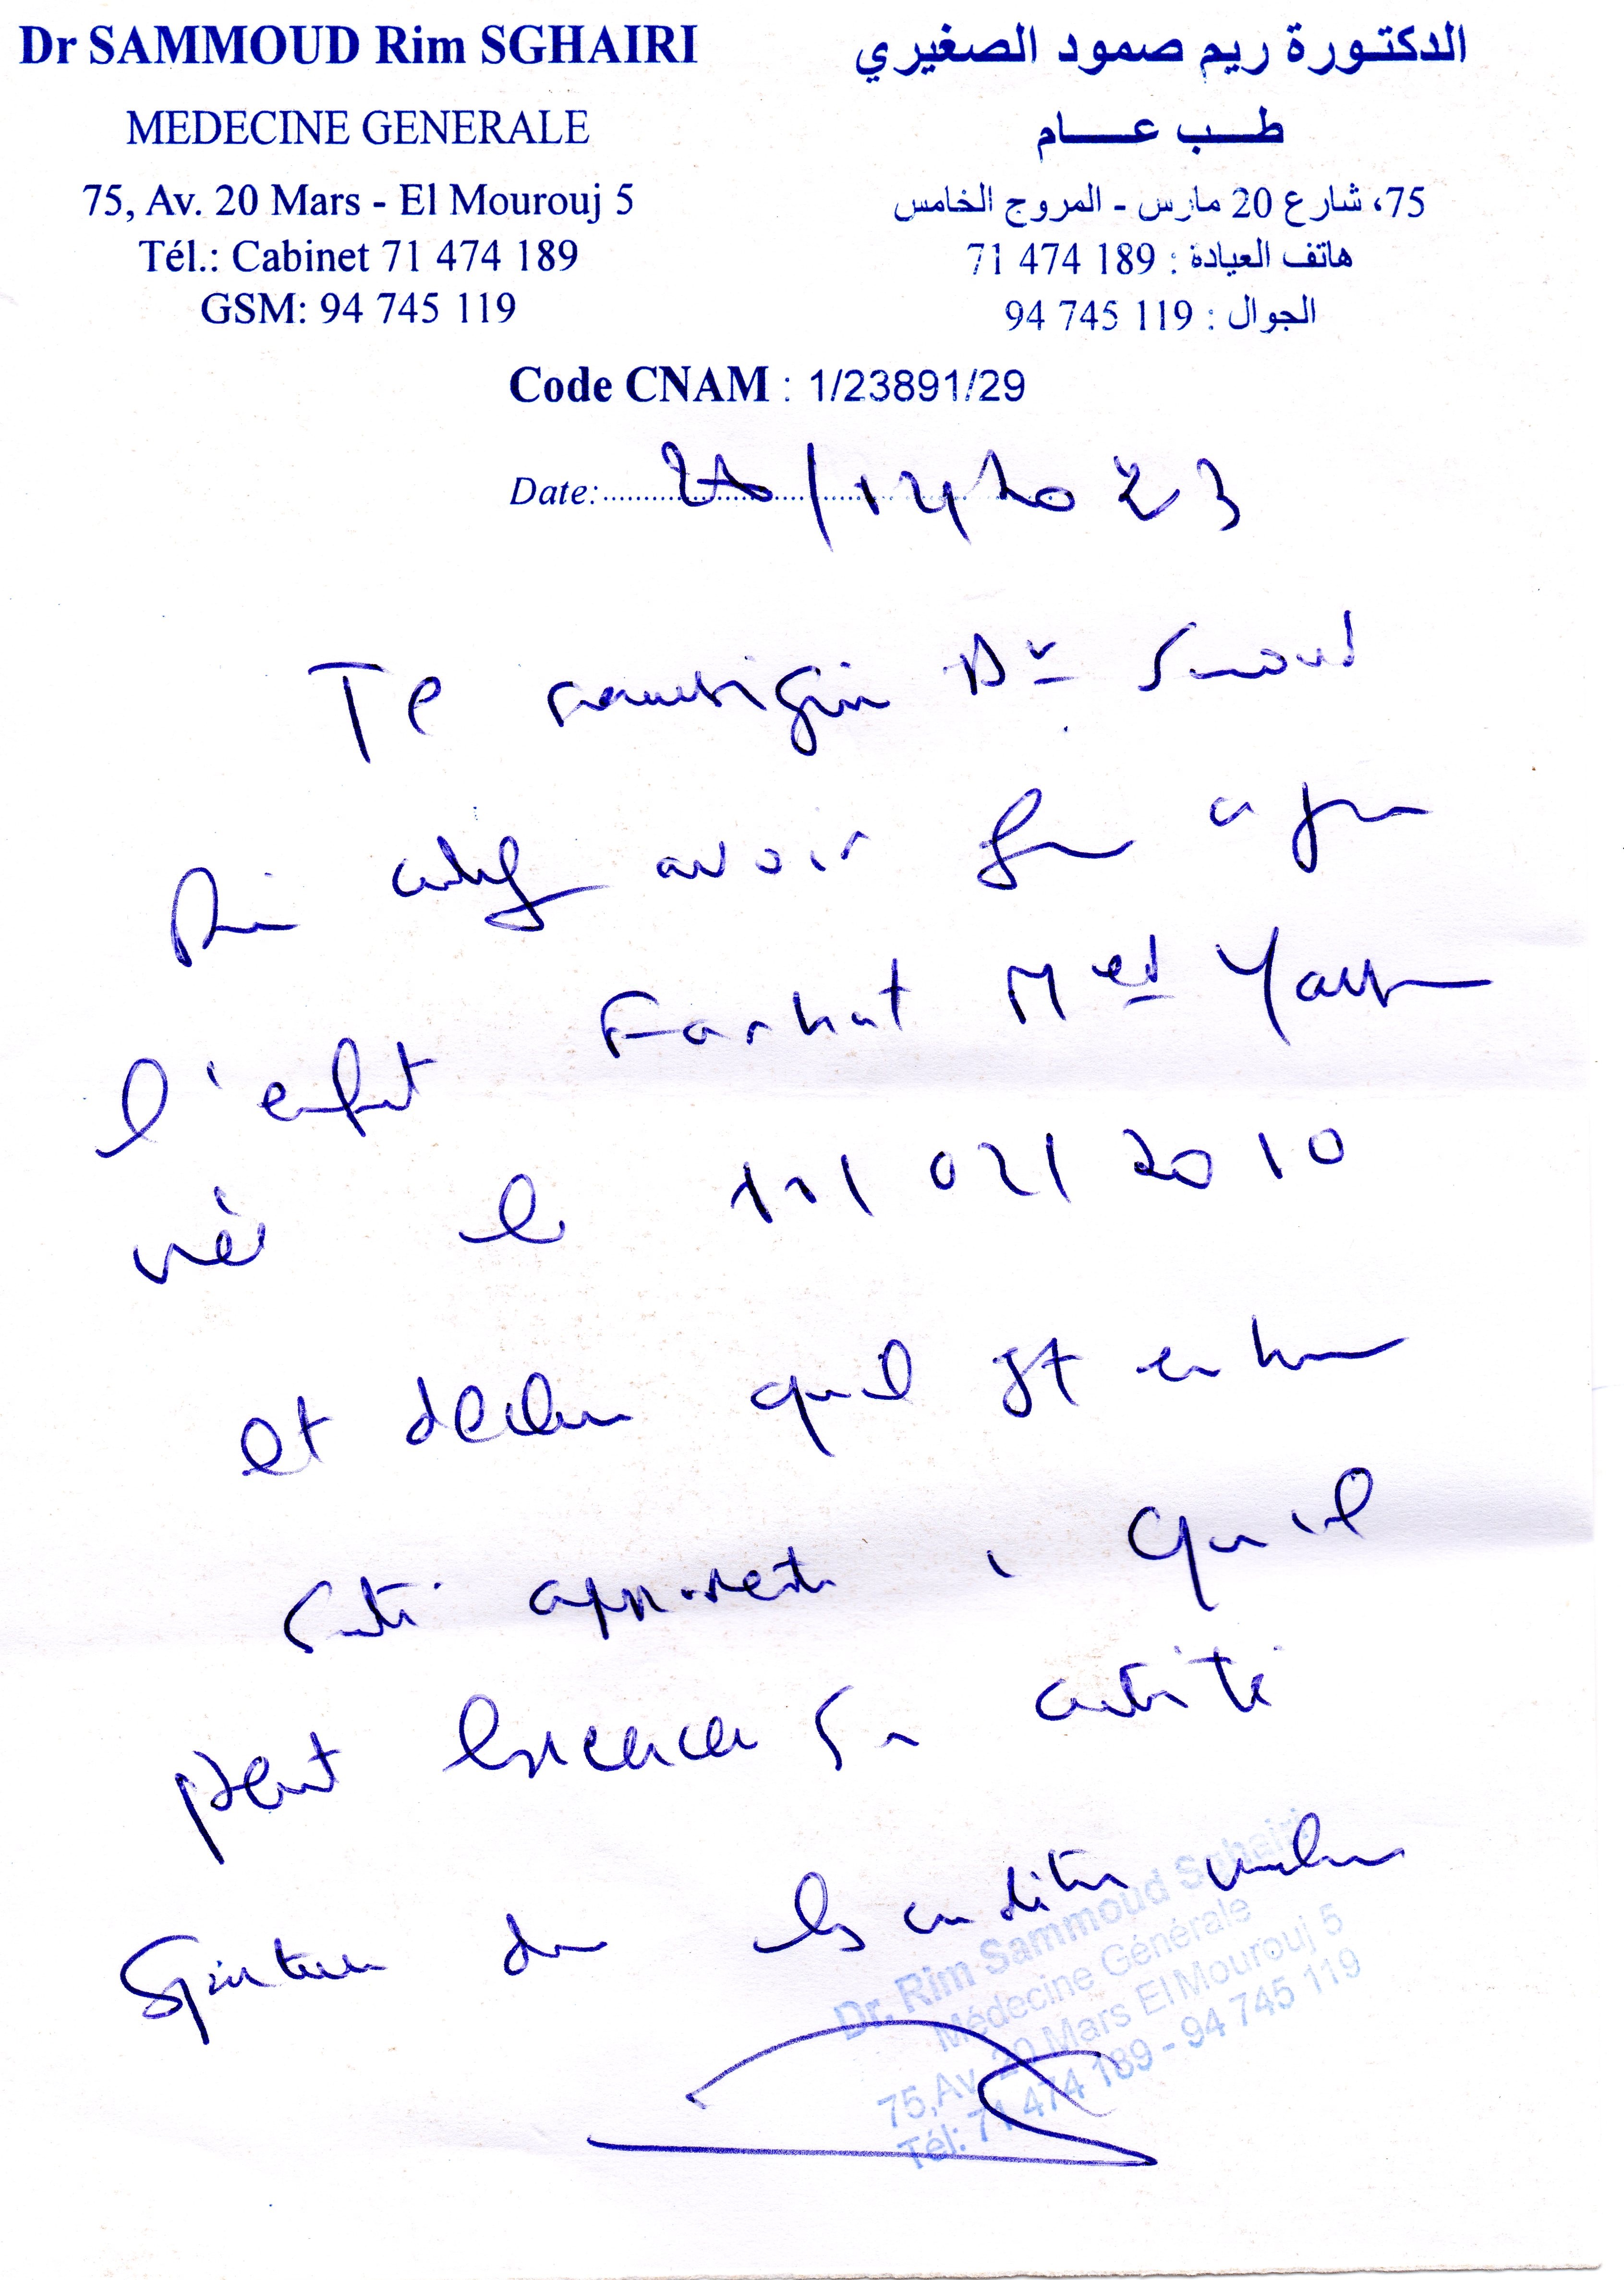 Dr SAMMOUD Rim SGHAIRI
MEDECINE GENERALE
75, Av. 20 Mars - El Mourouj 5
Tél.: Cabinet 71 474 189
GSM: 94 745 119
الدكتورة ريم صمود الصغيري
طب عام
75، شارع 20 مارس - المروج الخامس
هاتف العيادة : 189 474 71
الجوال : 119 745 94
Code CNAM : 1/23891/29
Date: /12/2023
Je soussigné Dr Samoud
Rim certifie avoir examiné ce jour
l'enfant Farhat Med Yassine
né le 11/02/2010
et déclare qu'il est en bonne
santé apparente, qu'il
peut exercer son activité
Sportive dans les conditions
Dr. Rim Sammoud Sghairi
Médecine Générale
75,Av. 20 Mars El Mourouj 5
Tél: 71 474 189 - 94 745 119